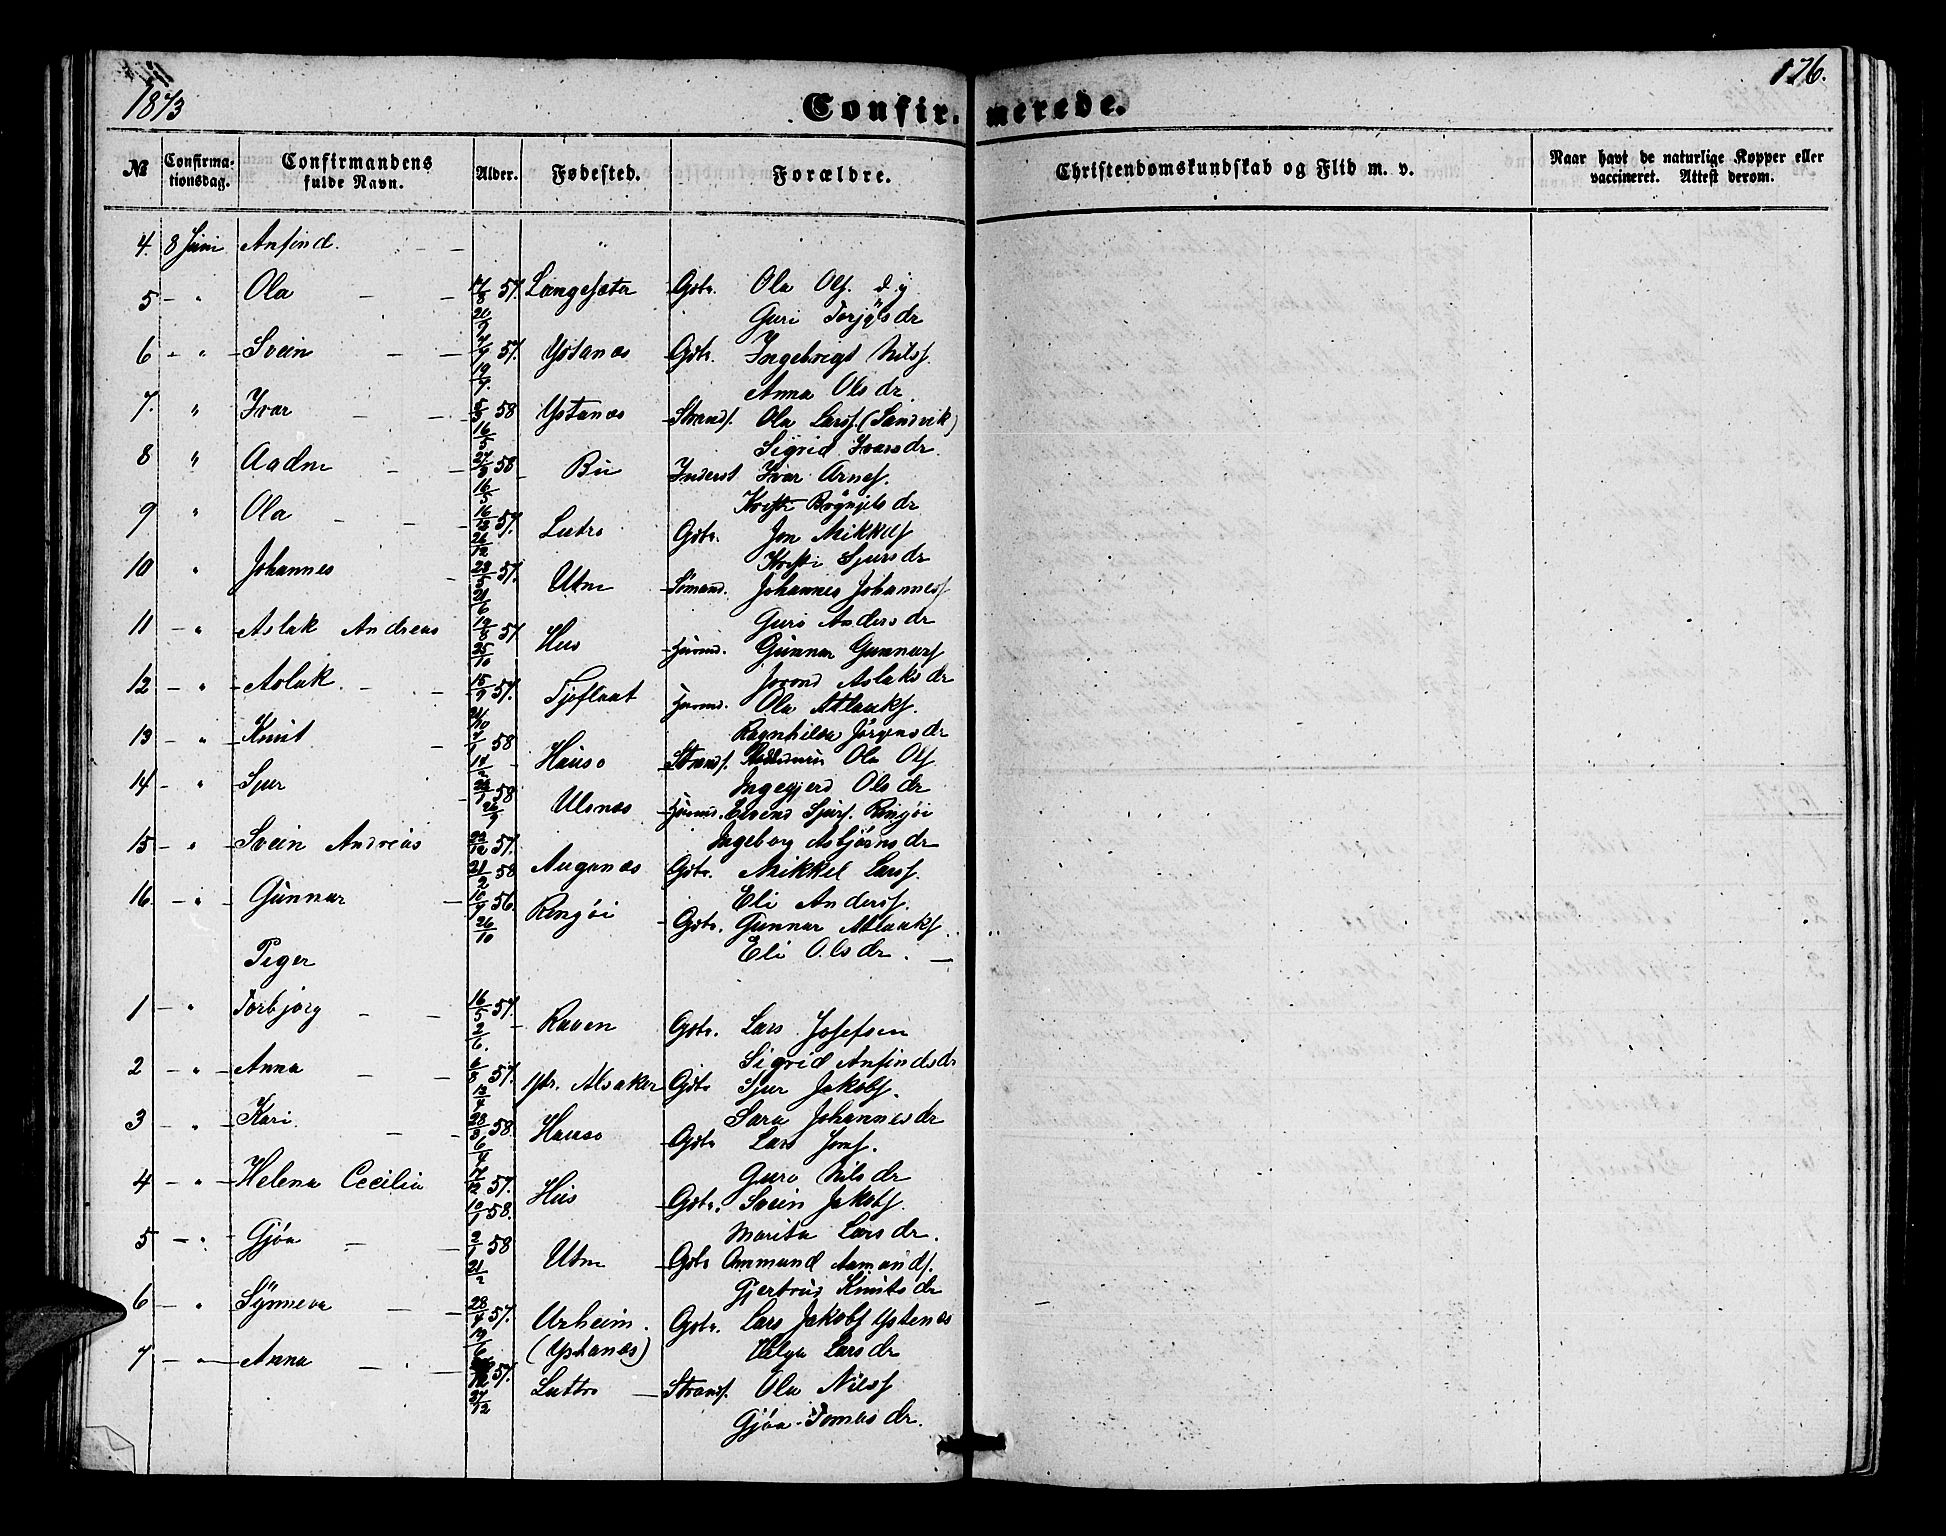 1873
Confirmerede.
176.
№ Confirmationsdag. Confirmandens fulde Navn. Alder. Fødested. Forældre. Christendomskundskab og Flid m. v. Naar havt de naturlige Kopper eller vaccineret. Attest derom.
4. 8 Juni Anfind. — "
5 — " Ola — — 57. Langesæter Gbr. Ola Ols.
Guri Torjylsdr
6 — " — Svein — — 57. Ystanæs Gbr. Ingebrigt Nilss.
19/7. Anna Olsdr.
7. " Ivar — — 58 Ystanæs — Strands. Ola Larss. (Sandvik)
16/5 Sigrid Ivarsdr.
8 " Aadne — — 58 Bu Inderst Ivar Arnes.
16/5 Kristi Brynjelsdr
9 " Ola — — 16/12 57. Lutro Gbr. Jon Mikkels
26/12 Kristi Sjursdr
10 " Johannes — 57. Utne — Sømand. Johannes Johanness
21/6 Guro Andersdr
11 — " — Aslak Andreas 19/8 57. Hus — Huusmd. Gunnar Gunnars
25/10 Jorond Aslaksdr
12 — " — Aslak. — — 15/9 57. Tjoflaat Huusmd. Ola Atlaaks.
Ragnhilda Jørgensdr
13 — " — Knut — 58 Hauso — Strands. Ola Ols.
Ingegjerd Olsdr
14 — " — Sjur — 58 Ulsnæs — Huusmd. Eivend Sjurs. Ringøi
Ingeborg Asbjørnsdr
15 — " — Svein Andreas 22/12 57. Auganæs Gbr. Mikkel Larss.
21/2 58 Eli Anderss.
16. — " — Gunnar — 56. Ringøi — Gbr. Gunnar Atlaaks.
26/10 Eli Olsdr. —
Piger
1 — " — Torbjørg — — 16/5 57. — Raven Gbr. Lars Josefsen
2/6. Sigrid Anfindsdr
2 — " — Anna — — 57. Alsaker Gbr Sjur Jakobs.
Sara Johannesdr
3 — " — Kari. — — 58. Hauso — Gbr Lars Jons.
6/4 Guro Nilsdr
4 — " — Helena Cecilia 57. Hus — Gbr. Svein Jakobs.
58. Marita Larsdr.
5 — " — Gjøa — — 2/1 58 Utne — Gbr Ommund Aamunds.
21/2 Gjertrud Knutsdr
6 — " — Synneva — — 28/4 57. Urheim. Gbr. Lars Jakobs Ystenæs
(Ystanæs) Helga Larsdr
7 — " — Anna — — 57. Luttro — Strands. Ola Nilss
27/12 Gjøa Tomasdr.